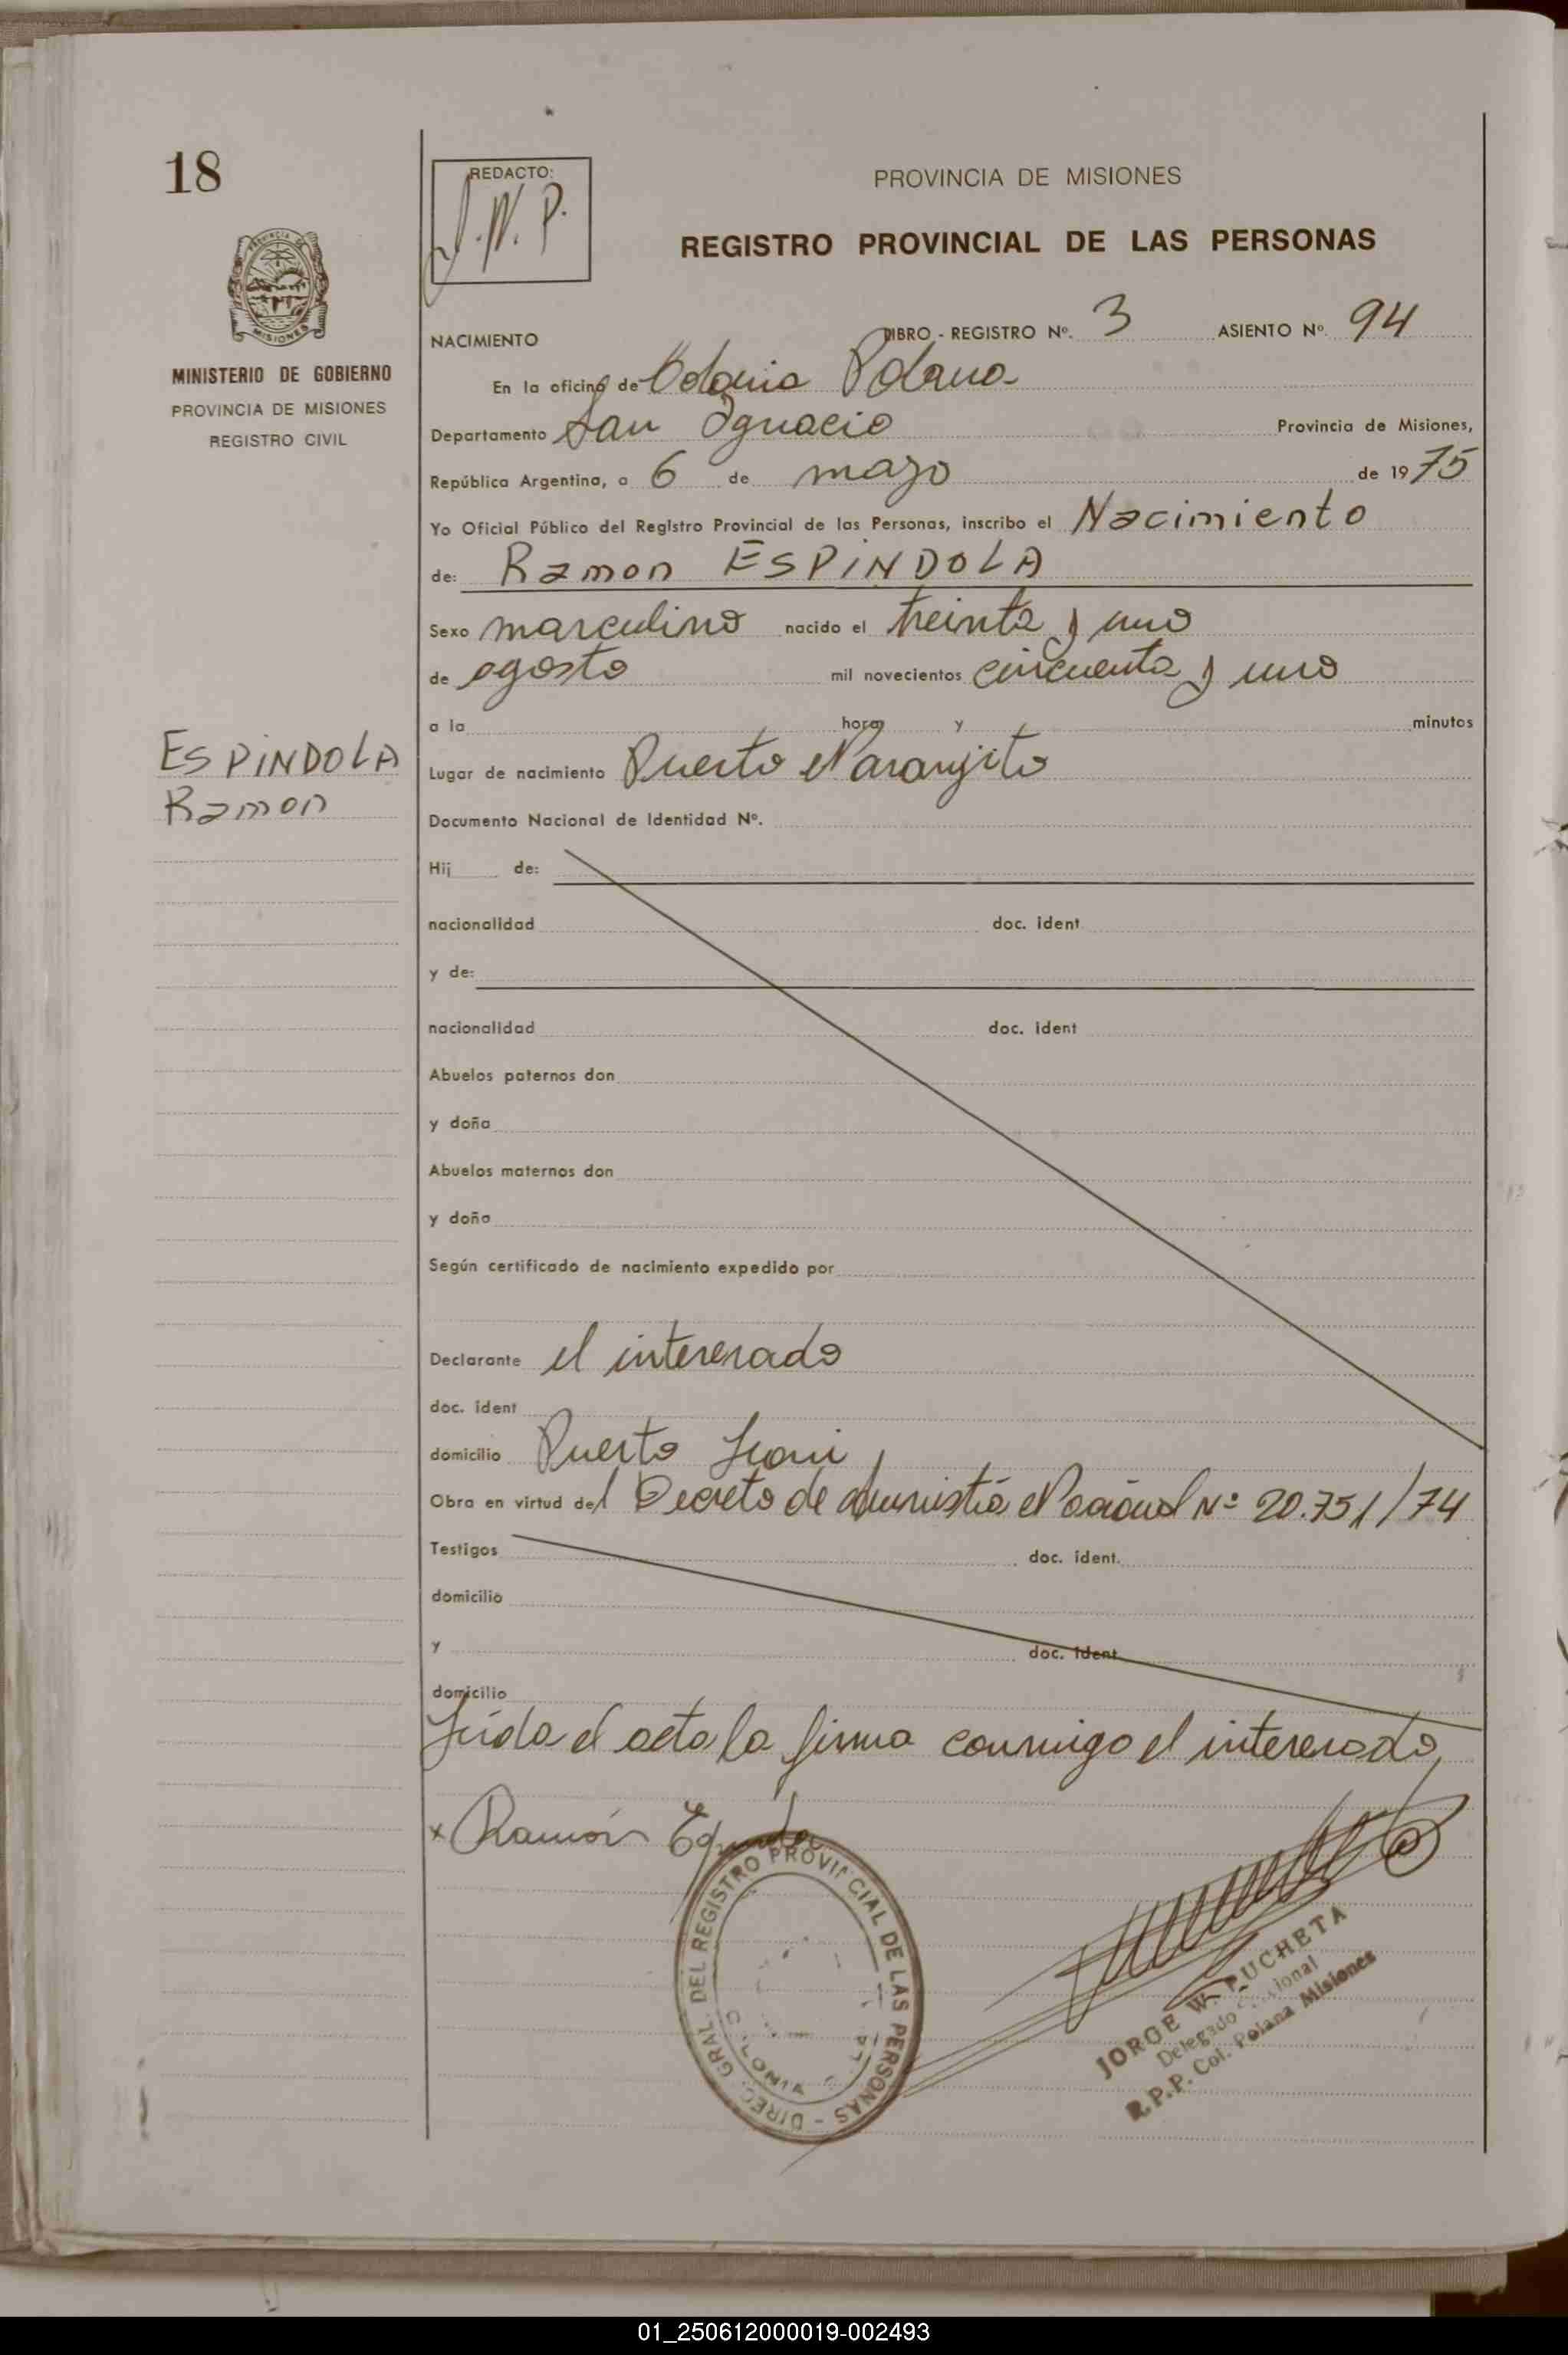 18
REDACTO:
J.W.P.
PROVINCIA DE MISIONES
REGISTRO PROVINCIAL DE LAS PERSONAS
PROVINCIA DE
MISIONES
MINISTERIO DE GOBIERNO
PROVINCIA DE MISIONES
REGISTRO CIVIL
NACIMIENTO LIBRO - REGISTRO Nº. 3 ASIENTO Nº. 94
En la oficina de Colonia Polana
Departamento San Ignacio Provincia de Misiones,
República Argentina, a 6 de mayo de 1975
Yo Oficial Público del Registro Provincial de las Personas, inscribo el Nacimiento
de: Ramon ESPINDOLA
Sexo masculino nacido el treinta y uno
de agosto mil novecientos cincuenta y uno
a la hora y minutos
ESPINDOLA
Ramon
Lugar de nacimiento Puerto Naranjito
Documento Nacional de Identidad Nº.
Hij de:
nacionalidad doc. ident
y de:
nacionalidad doc. ident
Abuelos paternos don
y doña
Abuelos maternos don
y doña
Según certificado de nacimiento expedido por
Declarante el interesado
doc. ident
domicilio Puerto
Obra en virtud del Decreto de Amnistía Nacional Nº 20.751/74
Testigos doc. ident.
domicilio
y doc. ident
domicilio
Leída el acta la firma conmigo el interesado,
x Ramón
DIREC. GRAL. DEL REGISTRO PROVINCIAL DE LAS PERSONAS -
COLONIA
JORGE W. PUCHETA
Delegado Seccional
R.P.P. Col. Polana Misiones
01_250612000019-002493